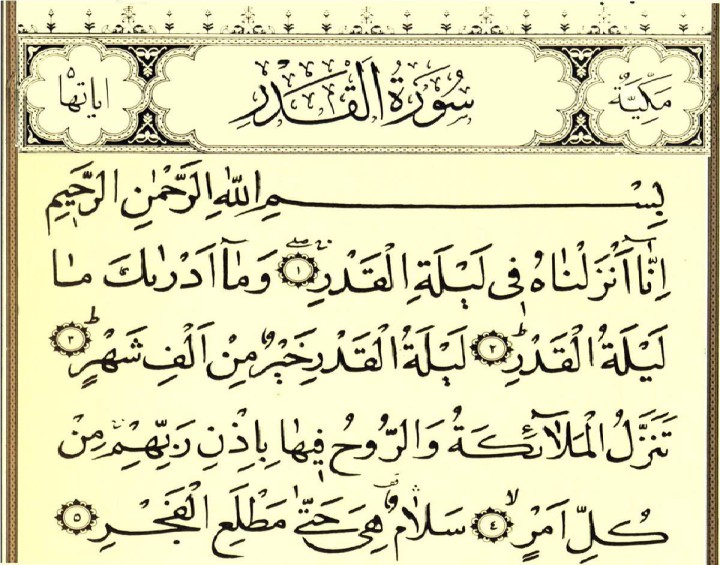 مَكِّيَّةٌ
سُورَةُ الْقَدْرِ
اياتها ٥
بِسْمِ اللّٰهِ الرَّحْمٰنِ الرَّحٖيمِ
اِنَّٓا اَنْزَلْنَاهُ فٖى لَيْلَةِ الْقَدْرِ ۝١ وَمَٓا اَدْرٰيكَ مَا
لَيْلَةُ الْقَدْرِؕ ۝٢ لَيْلَةُ الْقَدْرِ خَيْرٌ مِنْ اَلْفِ شَهْرٍؕ ۝٣
تَنَزَّلُ الْمَلٰٓئِكَةُ وَالرُّوحُ فٖيهَا بِاِذْنِ رَبِّهِمْ مِنْ
كُلِّ اَمْرٍۙ ۝٤ سَلَامٌ هِىَ حَتّٰى مَطْلَعِ الْفَجْرِ ۝٥